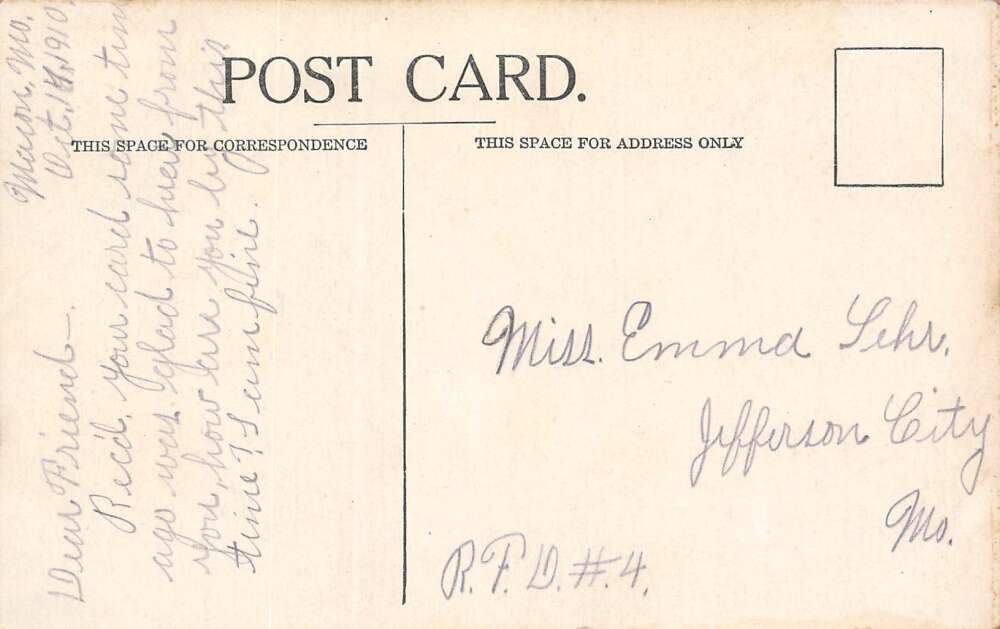 POST CARD.
THIS SPACE FOR CORRESPONDENCE
THIS SPACE FOR ADDRESS ONLY
Macon, Mo.
Oct. 14, 1910.
Dear Friend—.
Rec'd. your card some time
ago was glad to hear from
you how are you by this
time? I am fine.
Miss. Emma Sehr.
Jefferson City
Mo.
R.F.D.#.4.